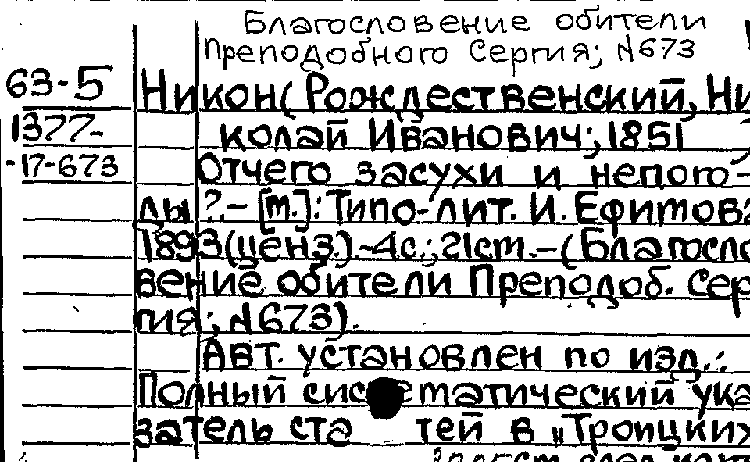 Благословение обители
Преподобного Сергия; N673
63-5 Никон (Рождественский, Ни
1377- колай Иванович; 1851
-17-673 Отчего засухи и непого-
ды?.- [т.]: Типо-лит. И. Ефимова
1893(ценз).-4с.; 21ст.-(Благосло
вение обители Преподоб. Сер
гия; N673).
Авт. установлен по изд.:
Полный систематический ука
затель ста тей в "Троицких